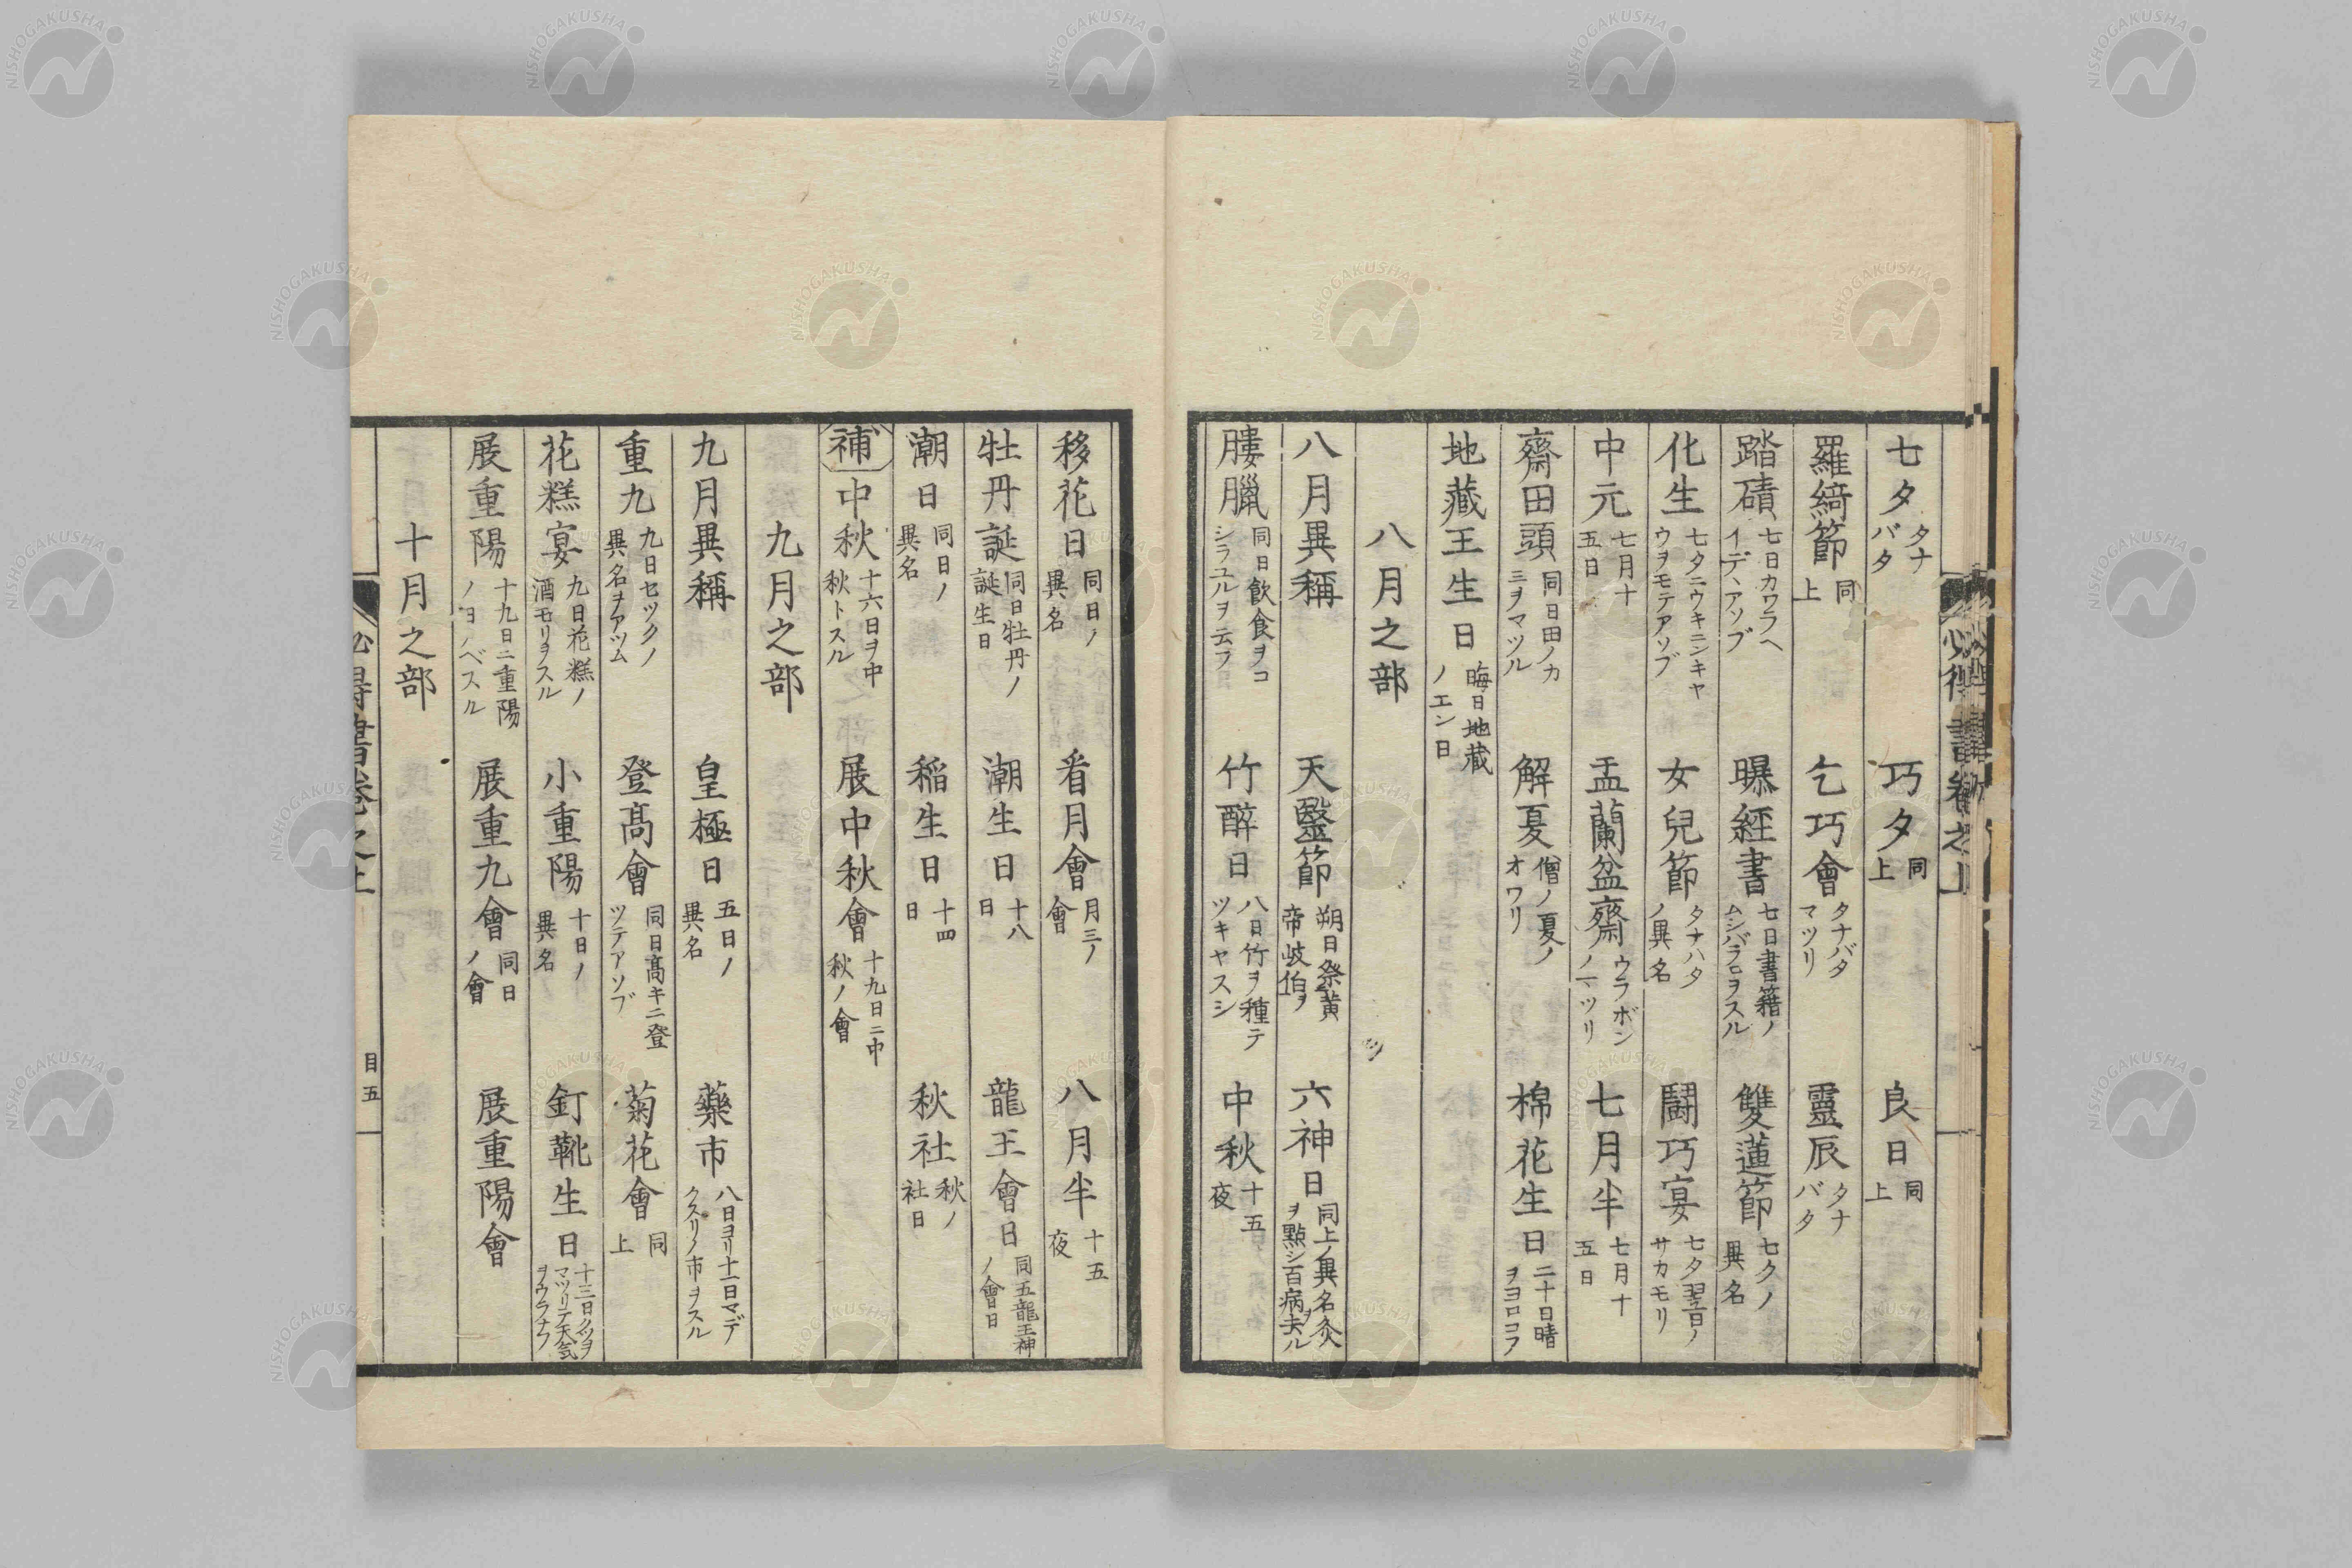 七夕 タナバタ 巧夕 同上 良日 同上
羅綺節 同上 乞巧會 タナバタマツリ 靈辰 タナバタ
踏磧 七日カワラヘイデヽアソブ 曝經書 七日書籍ノムシバラロヲスル 雙蓮節 七夕ノ異名
化生 七夕ニウキニンキヤウヲモテアソブ 女兒節 タナハタノ異名 鬪巧宴 七夕翌日ノサカモリ
中元 七月十五日 盂蘭盆齋 ウラボンノマツリ 七月半 七月十五日
齋田頭 同日田ノカミヲマツル 解夏 僧ノ夏ノオワリ 棉花生日 二十日晴ヲヨロコフ
地藏王生日 晦日地藏ノエン日
八月之部
八月異稱 天醫節 朔日祭黃帝岐伯ヲ 六神日 同上ノ異名灸ヲ點シ百病ヲ夫ル
膢臘 同日飲食ヲコシラユルヲ云フ 竹醉日 八日竹ヲ種テツキヤスシ 中秋 十五夜
移花日 同日ノ異名 看月會 月三ノ會 八月半 十五夜
牡丹誕 同日牡丹ノ誕生日 潮生日 十八日 龍王會日 同五龍王神ノ會日
潮日 同日ノ異名 稲生日 十四日 秋社 秋ノ社日
補 中秋 十六日ヲ中秋トスル 展中秋會 十九日ニ中秋ノ會
九月之部
九月異稱 皇極日 五日ノ異名 藥市 八日ヨリ十一日マデクスリノ市ヲスル
重九 九日セツクノ異名ヲアツム 登髙會 同日髙キニ登ツテアソブ 菊花會 同上
花糕宴 九日花糕ノ酒モリヲスル 小重陽 十日ノ異名 釘靴生日 十三日クツヲマツリテ天氣ヲウラナフ
展重陽 十九日ニ重陽ノヨノベスル 展重九會 同日ノ會 展重陽會
十月之部
目五
NISHOGAKUSHA